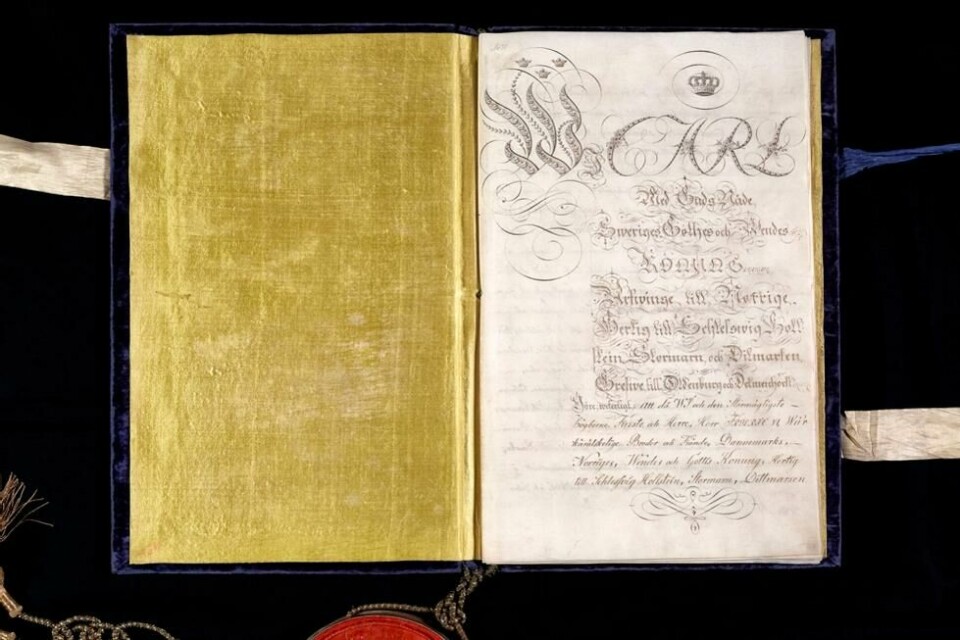 Wij CARL
Med Guds Nåde
Sweriges, Göthes och Wendes
KONUNG
Arfwinge till Norrige,
Hertig till Schleswig Holl
stein Stormarn, och Ditmarsen
Grefwe till Oldenburg och Delmenhorst
Göre witterligt, att då Wj och den Stormägtigste
högborne Furste och Herre, Herr Wår
käraste Broder och Frände, Dannemarks,
Norriges, Wendes och Göttes Konung, Hertig
till Schleswig Hollstein, Stormarn, Dittmarsen